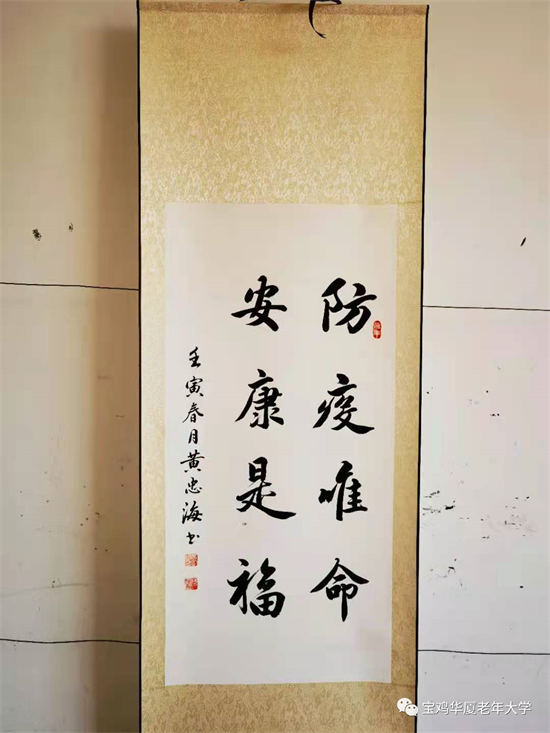 防疫唯命
安康是福
壬寅春月黄忠海书
宝鸡华厦老年大学